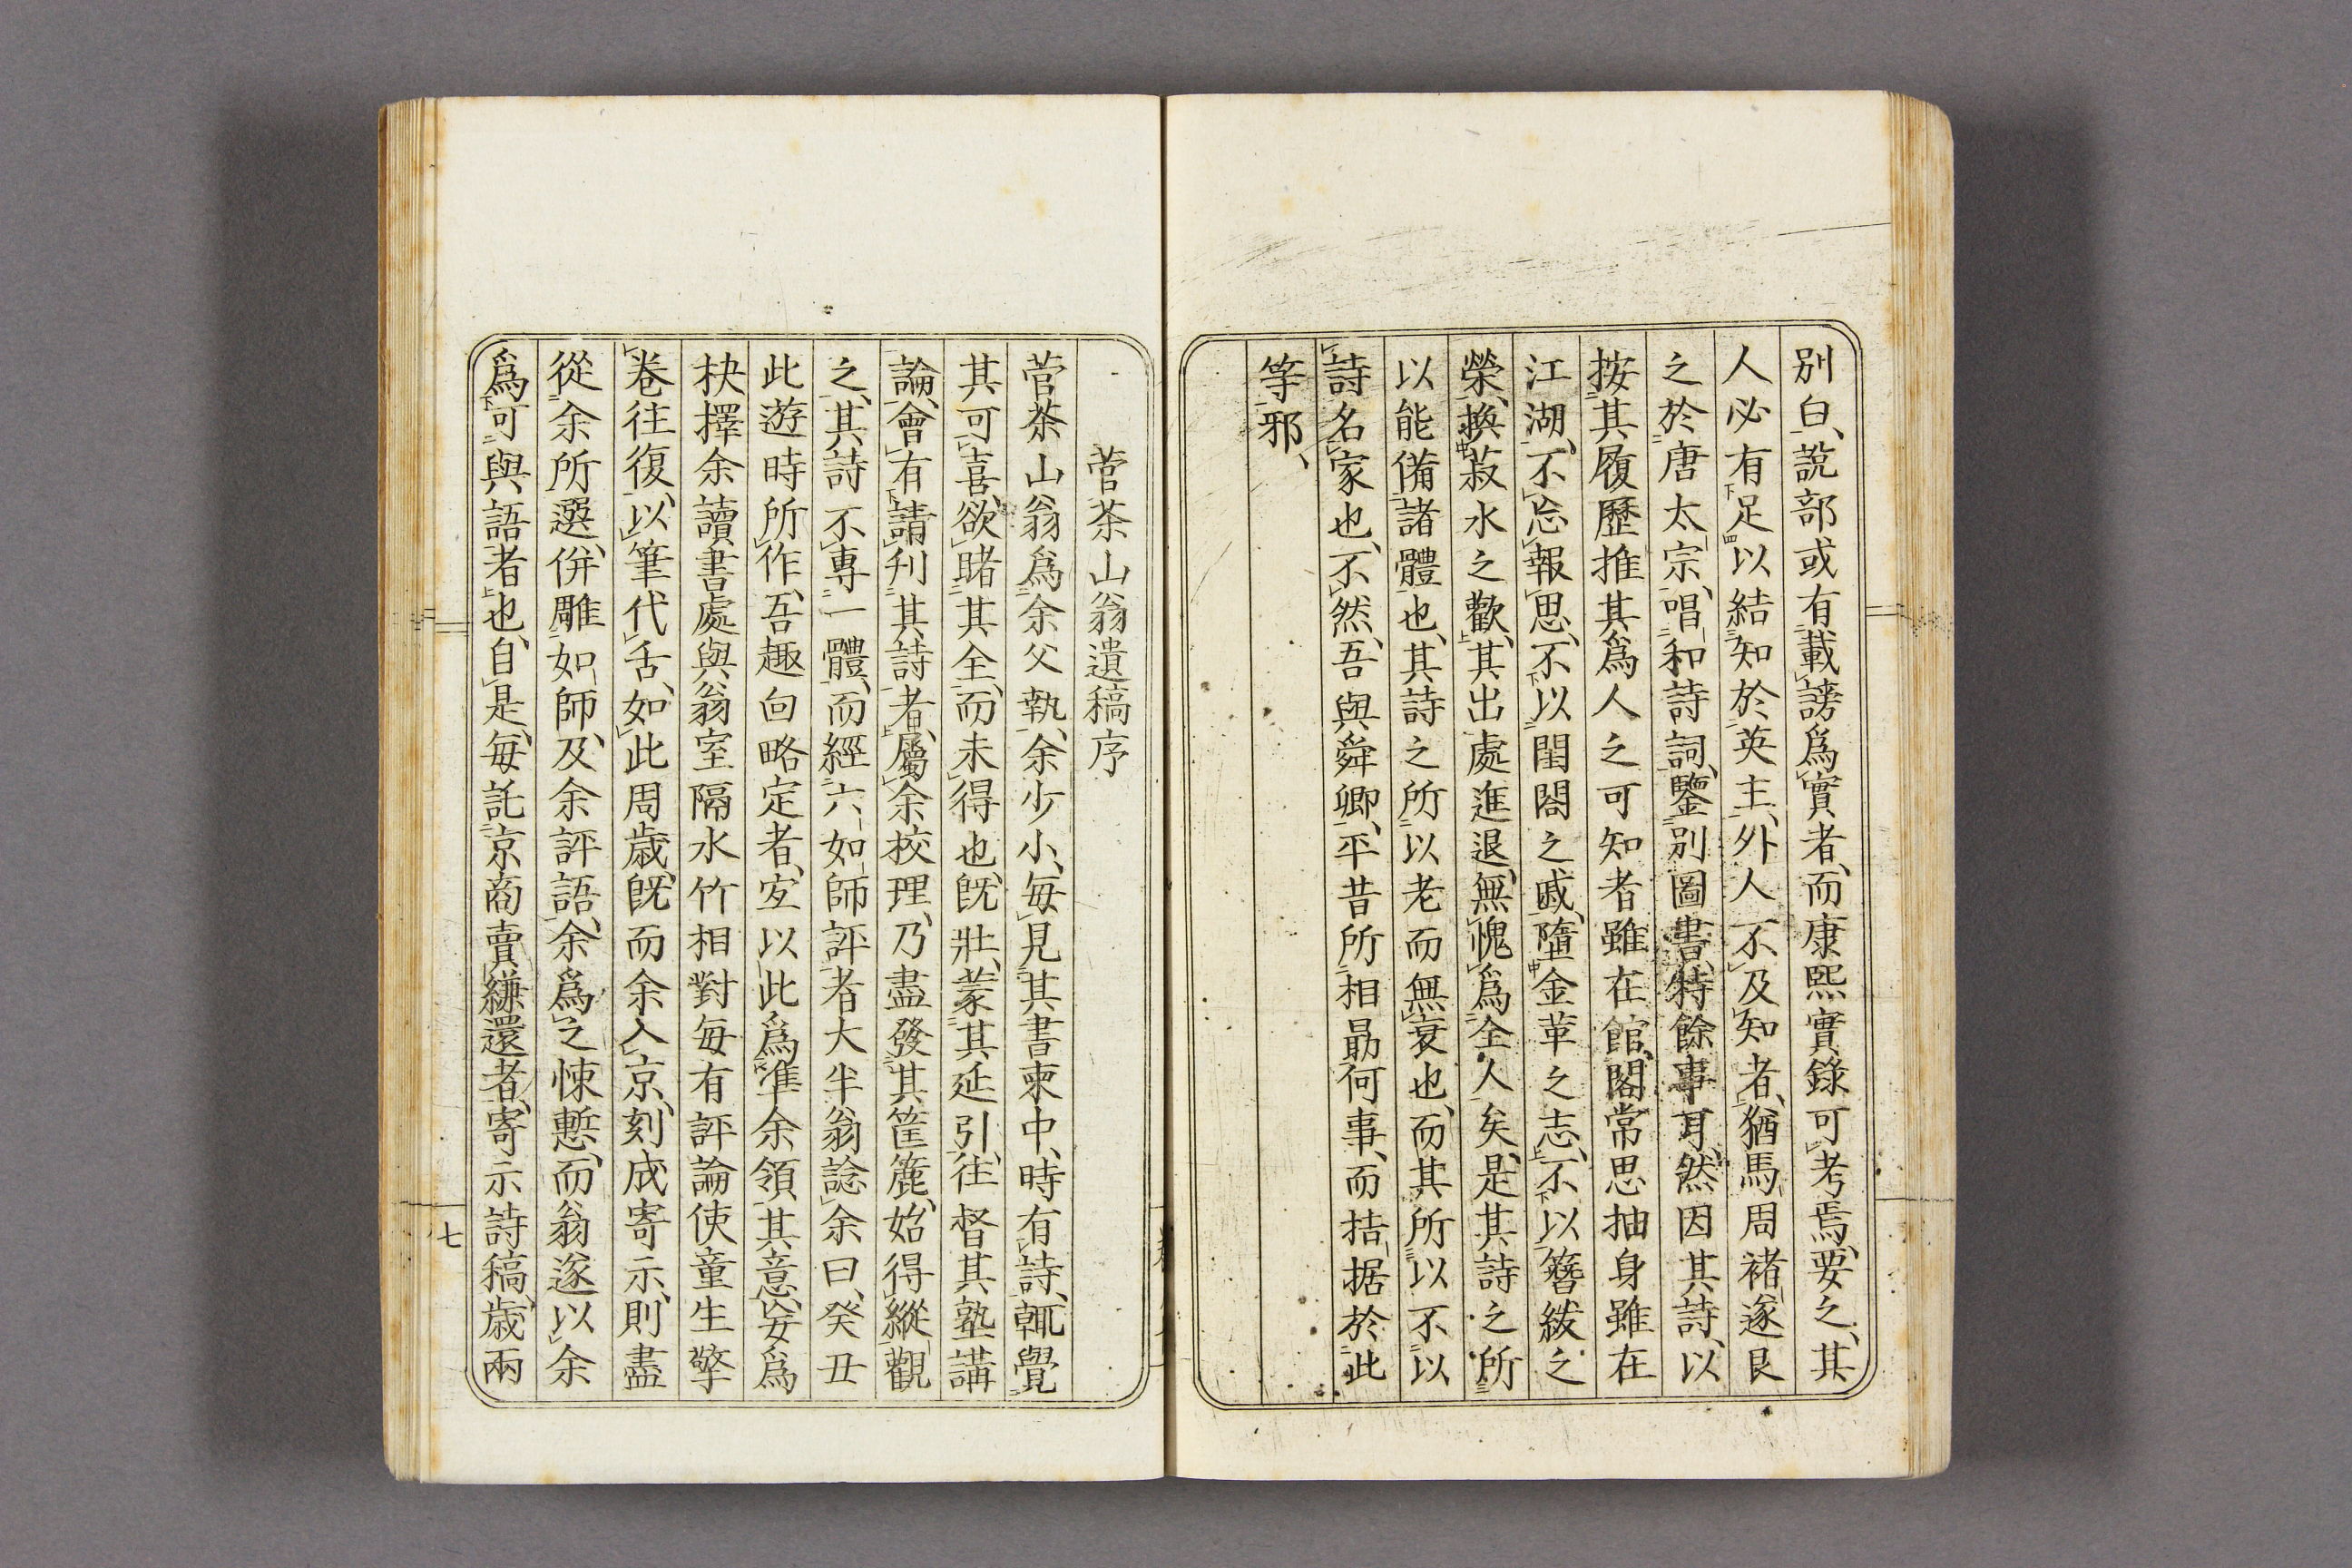 別白、說部或有載謗爲實者、而康熙實錄可考焉、要之、其
人必有足以結知於英主、外人不及知者、猶馬周褚遂良
之於唐太宗、唱和詩詞、鑒別圖書、特餘事耳、然因其詩、以
按其履歷推其爲人之可知者雖在館閣常思抽身雖在
江湖、不忘報恩、不以閨閤之戚、墮金革之志、不以簪紱之
榮、換菽水之歡、其出處進退、無愧爲全人矣、是其詩之所
以能備諸體也、其詩之所以老而無衰也、而其所以不以
詩名家也、不然、吾與舜卿、平昔所相勗何事、而拮据於此
等邪、
菅茶山翁遺稿序
菅茶山翁爲余父執、余少小、每見其書柬中、時有詩、輒覺
其可喜、欲睹其全、而未得也、既壯、蒙其延引、往督其塾講
論、會有請刊其詩者、屬余校理、乃盡發其筐簏、始得縱觀
之、其詩不專一體、而經六如師評者大半翁諗余曰、癸丑
此遊時所作、吾趣向略定者、宜以此爲準余領其意、妄爲
抉擇余讀書處與翁室隔水竹相對每有評論使童生擎
卷往復、以筆代舌、如此周歲、既而余入京、刻成寄示、則盡
從余所選、併雕如師、及余評語、余爲之悚慙、而翁遂以余
爲可與語者也、自是、每託京商賣縑還者、寄示詩稿、歲兩
七